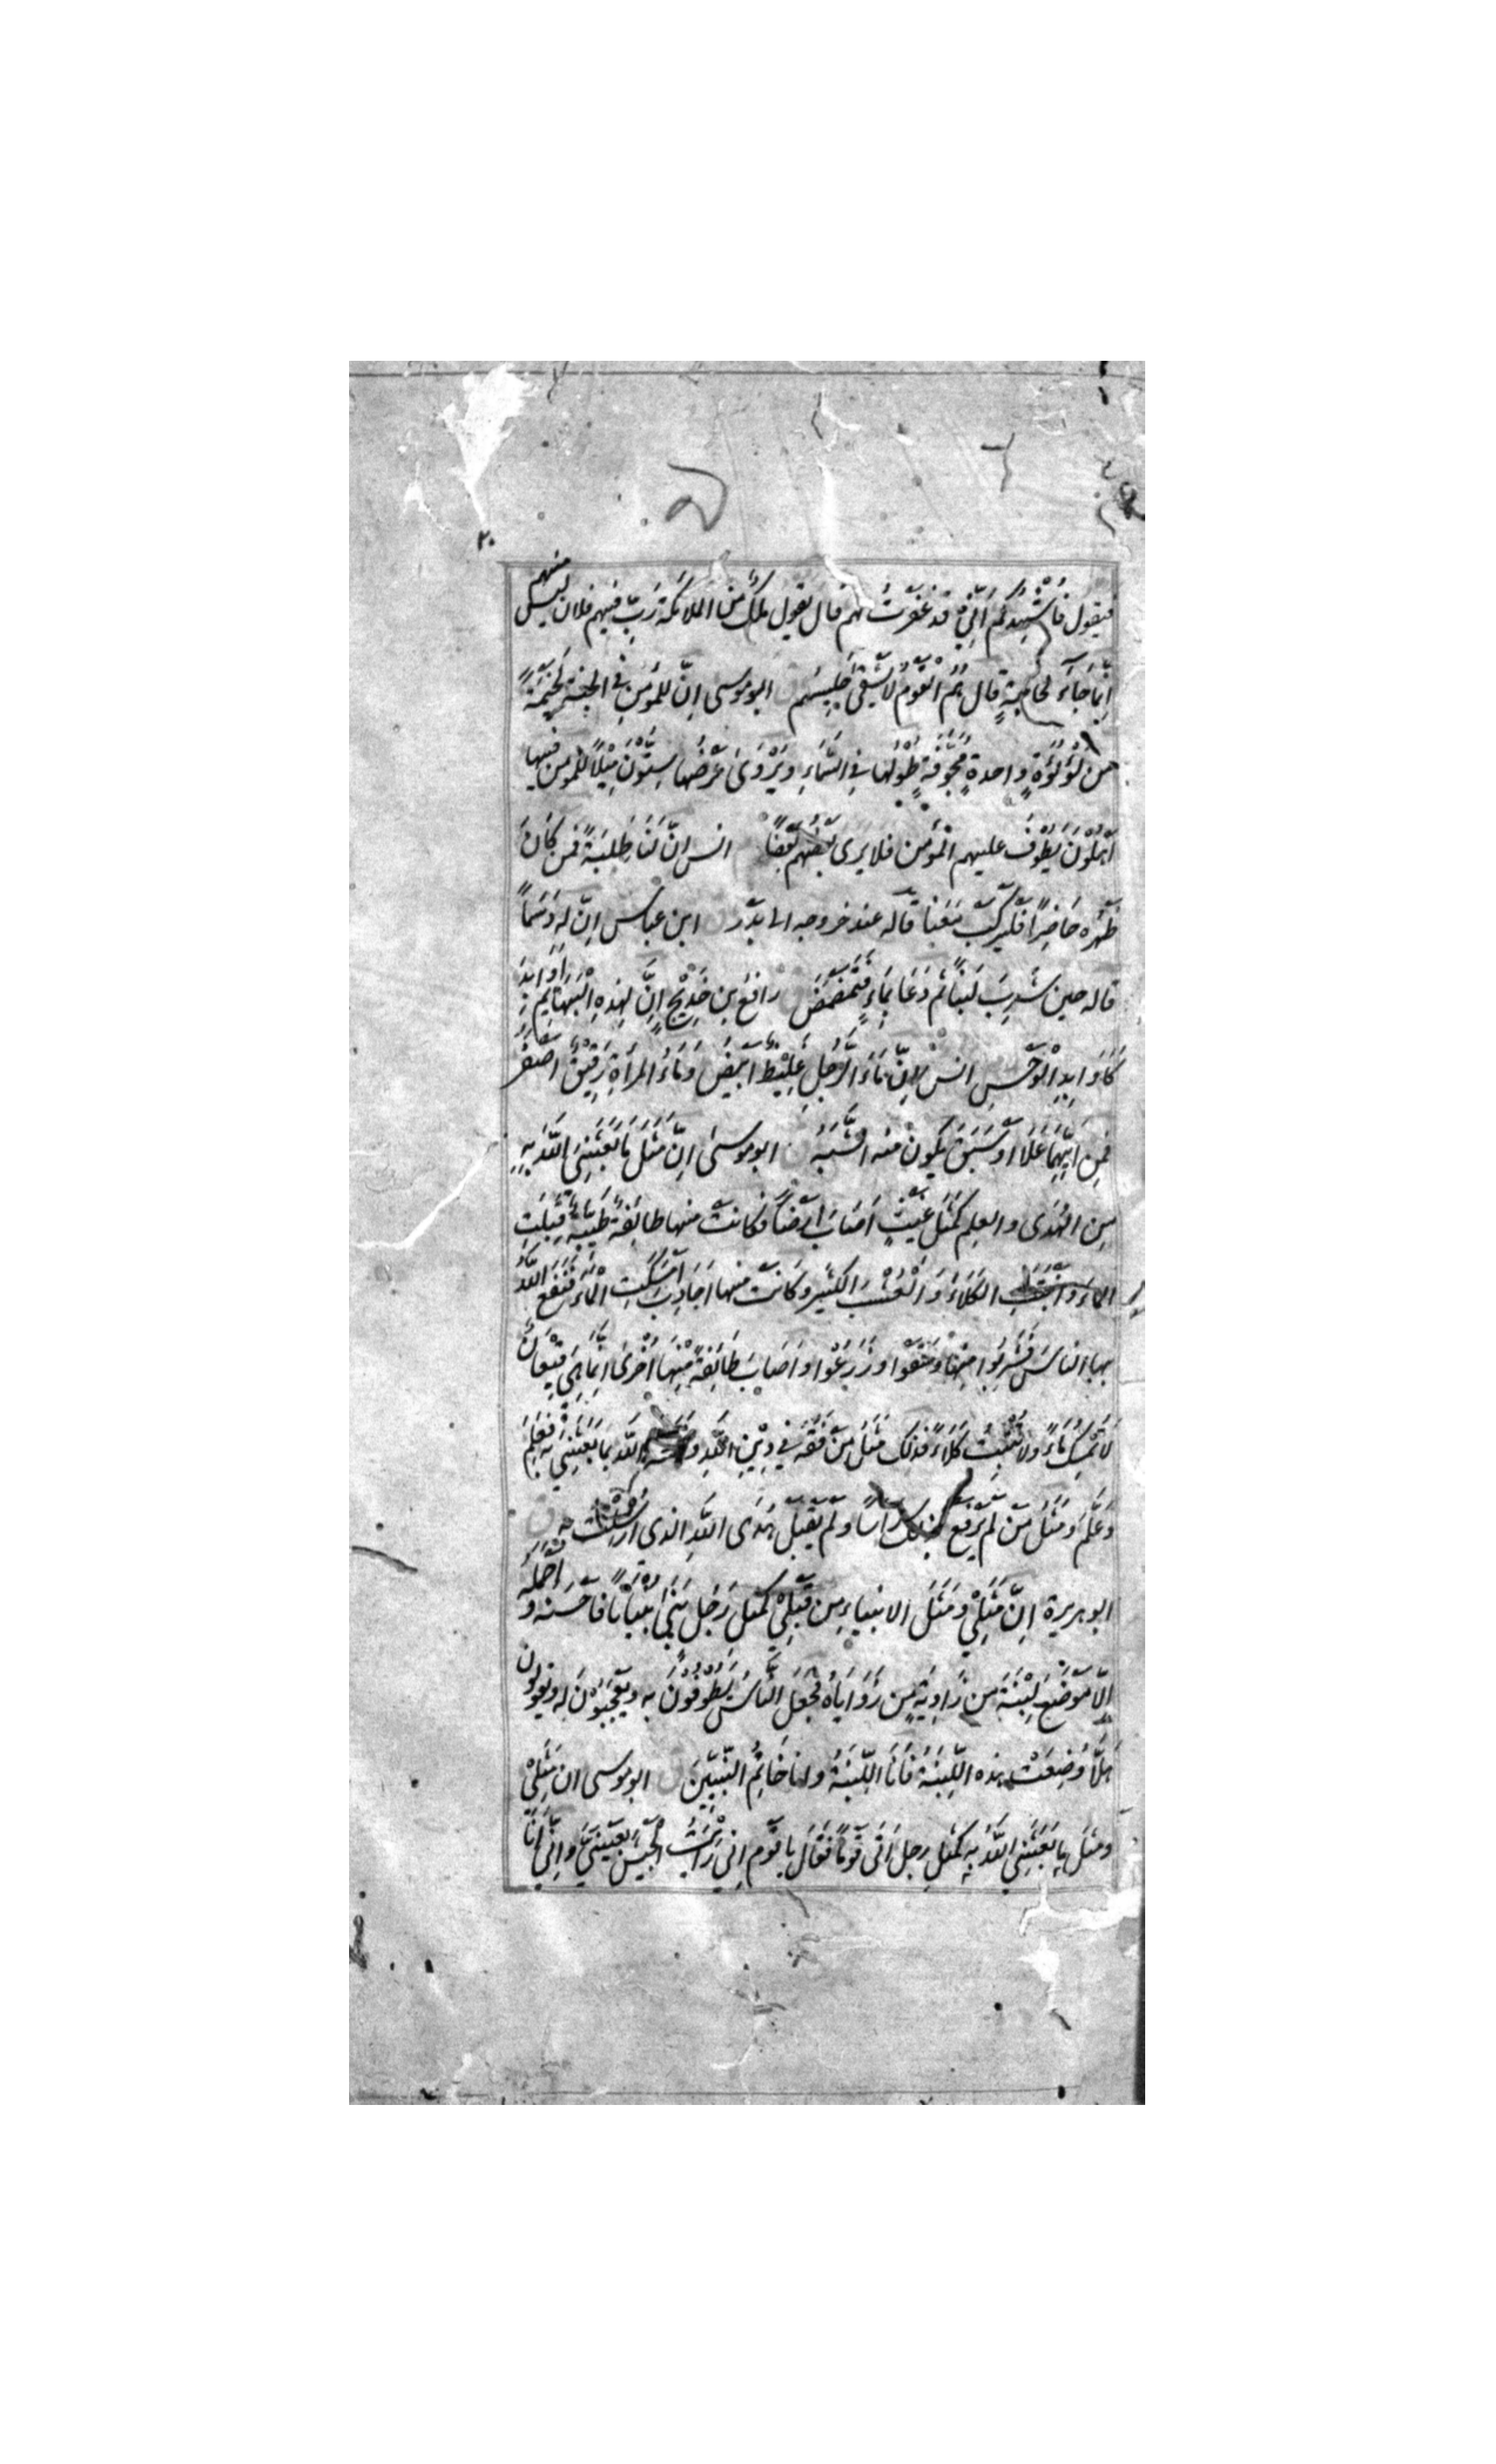 ٢٠
فيقول فَاُشْهِدُكُم اَنِّيْ قد غفرتُ لهم قال يقول مَلَكٌ مِنَ الملائكة رَبِّ فيهم فلان ليس منهم
اِنَّمَا جَاءَ لِحَاجَةٍ قال هُمُ الْقَوْمُ لا يَشْقٰى جَلِيسُهم ابو موسى اِنَّ للمُؤمِنِ فِي الجنة لَخَيْمَةً
من لُؤْلُؤَةٍ واحدةٍ مُجَوَّفَةٍ طُوْلُها فِي السَّمَاءِ ويُرْوٰى عَرْضُها سِتُّوْنَ مِيْلاً للمومن فيها
اَهْلُوْنَ يَطُوْفُ عليهم الْمُؤمن فلا يرى بَعْضُهم بَعْضًا انس اِنَّ لَنَا طَلِبَةً فمن كَانَ
ظَهْرُه حَاضِرًا فَلْيَرْكَبْ مَعَنا قاله عند خروجه الى بَدْر ابن عباس اِنَّ له دَسَمًا
قاله حين شَرِبَ لَبَنًا ثم دَعَا بِمَاءٍ فَتَمَضْمَضَ رافع بن خَدِيْجٍ اِنَّ لِهٰذِهِ الْبَهَائِمِ اَوَابِدَ
كَاَوَابِدِ الْوَحْشِ انس اِنَّ مَاءَ الرَّجُلِ غَلِيْظٌ اَبْيَضُ وَمَاءُ المرأةِ رَقِيْقٌ اَصْفَرُ
فَمِن اَيِّهِمَا عَلَا اَوْ سَبَقَ يَكُونُ منه الشَّبَهُ ابو موسى اِنَّ مَثَلَ مَا بَعَثَنِيَ اللّٰهُ بِهِ
مِنَ الهُدٰى والعِلم كَمَثَلِ غَيْثٍ اَصَابَ اَرْضًا فكانتْ منها طائِفَةٌ طَيِّبَةٌ قَبِلَتِ
الماءَ وَاَنْبَتَتِ الكَلَاءَ وَالْعُشْبَ الكثِيْرَ وكَانتْ منها اَجَادِبُ اَمْسَكَتِ الْمَاءَ فَنَفَعَ اللّٰهُ
بها الناسَ فَشَرِبُوا مِنْها وَسَقَوْا وزَرَعُوْا واَصَابَ طَائِفَةً مِنْهَا اُخْرٰى اِنَّمَا هِيَ قِيْعَانٌ
لَا تُمْسِكُ مَاءً ولا تُنْبِتُ كَلَاءً فذلك مَثَلُ مَنْ فَقُهَ فِي دِيْنِ اللّٰهِ اللّٰهُ بما بَعَثَنِيْ به فَعَلِمَ
وَعَلَّمَ ومَثَلُ مَنْ لَمْ يَرْفَعْ بذلك رَأسًا وَلَمْ يَقْبَلْ هُدَى اللّٰهِ الذى اُرْسِلْتُ به
ابو هريرة اِنَّ مَثَلِيْ ومَثَلَ الانبياءِ مِن قَبْلِيْ كمَثَلِ رَجُل بَنٰى بُنْيَانًا فَاَحْسَنَه واَجْمَلَه
اِلَّا مَوْضِعَ لَبِنَةٍ من زَاوِيَةٍ مِن زَوَايَاهُ فَجَعَلَ النَّاسُ يَطُوْفُوْنَ به ويَعْجَبُوْنَ له ويقولون
هَلَّا وُضِعَتْ هٰذه اللَّبِنَةُ فَاَنَا اللَّبِنَةُ وانا خَاتِمُ النَّبِيِّينَ ابو موسى ان مَثَلِيْ
ومَثَلَ ما بَعَثَنِيَ اللّٰهُ بِه كَمَثَلِ رجل اَتٰى قَوْمًا فَقَالَ يا قَوْم اِنِّي رَاَيْتُ الْجَيْشَ بِعَيْنَيَّ واِنِّيْ اَنَا